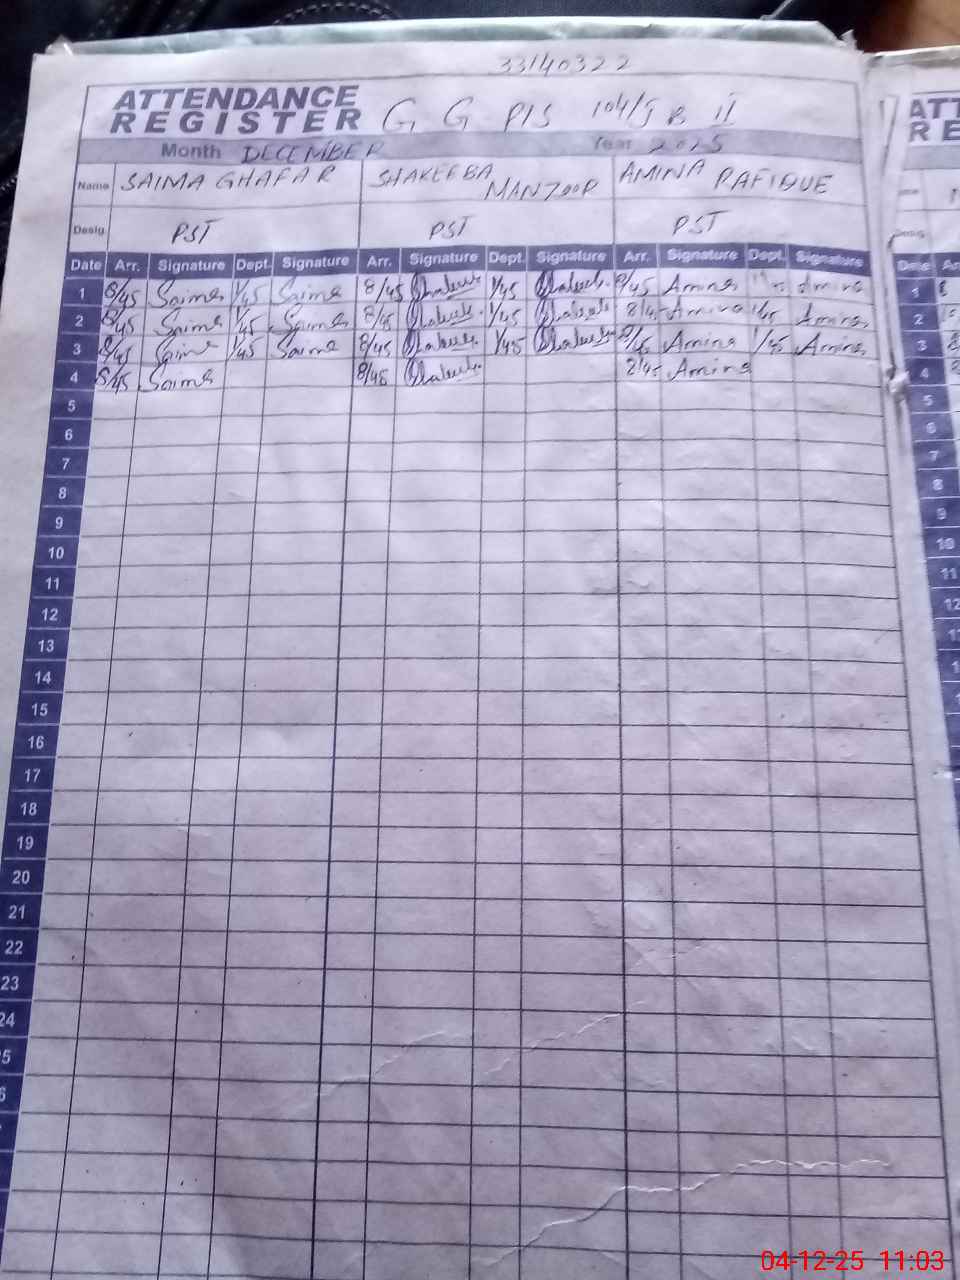 33140322
ATTENDANCE
REGISTER G G P/S 104/J B II
Month DECEMBER Year 2025
Name SAIMA GHAFAR SHAKEEBA MANZOOR AMINA RAFIQUE
Desig. PST PST PST
Date Arr. Signature Dept. Signature Arr. Signature Dept. Signature Arr. Signature Dept. Signature
1 8/45 Saima 1/45 Saima 8/45 1/45 8/45 Amina Amina
2 8/45 Saima 1/45 Saima 8/45 1/45 8/45 Amina 1/45 Amina
3 8/45 Saima 1/45 Saima 8/45 1/45 8/45 Amina 1/45 Amina
4 8/45 Saima 8/45 8/45 Amina
5
6
7
8
9
10
11
12
13
14
15
16
17
18
19
20
21
22
23
24
ATT
RE
Date
1
2
3
4
5
6
7
8
9
10
11
12
04-12-25 11:03